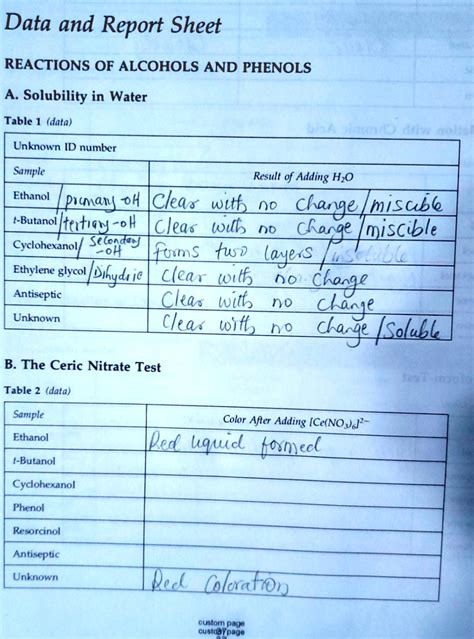 Data and Report Sheet
REACTIONS OF ALCOHOLS AND PHENOLS
A. Solubility in Water
Table 1 (data)
Unknown ID number
Sample Result of Adding H₂O
Ethanol /primary-OH Clear with no change/miscible
t-Butanol/tertiary-OH Clear with no change/miscible
Cyclohexanol/Secondary -OH forms two layers/insoluble
Ethylene glycol/Dihydric Clear with no change
Antiseptic Clear with no change
Unknown Clear with no change/Soluble
B. The Ceric Nitrate Test
Table 2 (data)
Sample Color After Adding [Ce(NO₃)₆]²⁻
Ethanol Red liquid formed
t-Butanol
Cyclohexanol
Phenol
Resorcinol
Antiseptic
Unknown Red Coloration
custom page